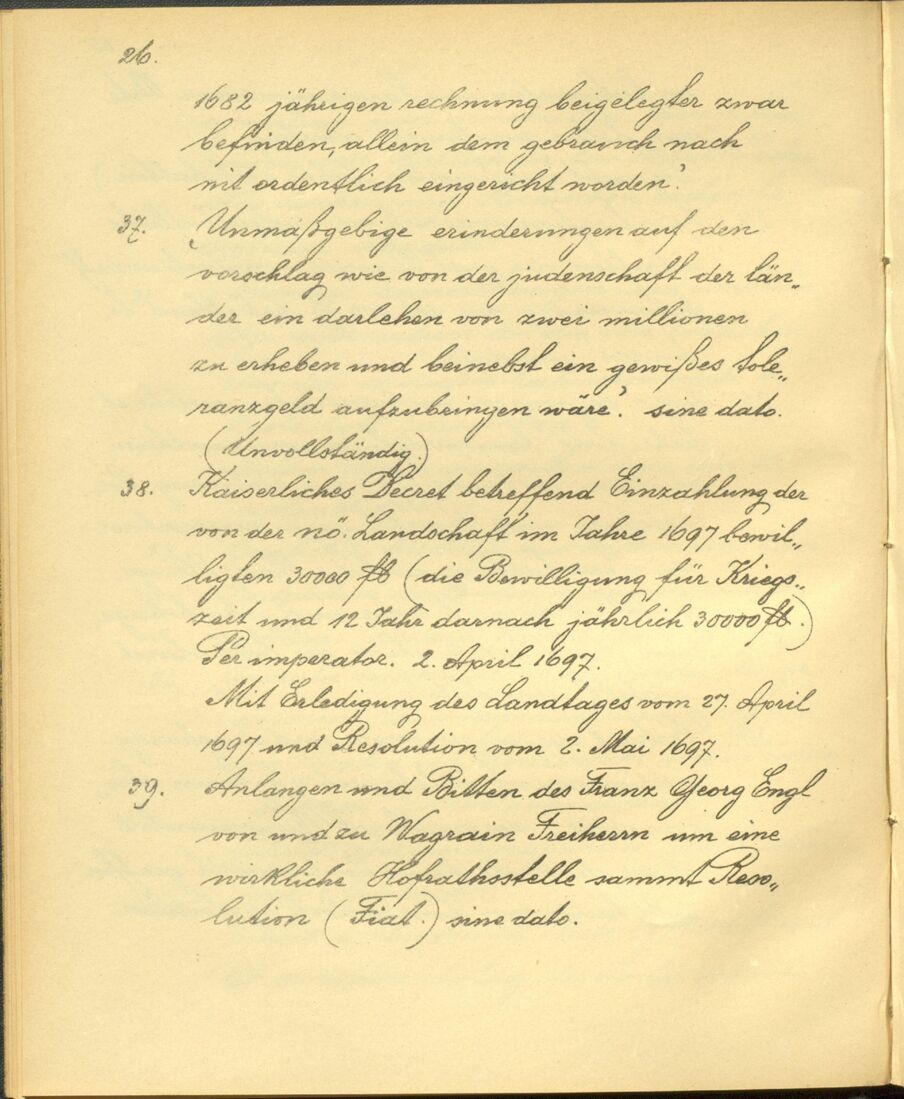 26.
1682 jährigen rechnung beigelegter zwar
befinden, allein dem gebrauch nach
nit ordentlich eingericht worden'.
37. ‚Unmaßgebige erinderungen auf den
vorschlag wie von der judenschaft der län„
der ein darlehen von zwei millionen
zu erheben und beinebst ein gewißes tole„
ranzgeld aufzubringen wäre'. sine dato.
(Unvollständig.)
38. Kaiserliches Decret betreffend Einzahlung der
von der nö. Landschaft im Jahre 1697 bewil„
ligten 30000 fl (die Bewilligung für Kriegs„
zeit und 12 Jahr darnach jährlich 30000 fl.)
Per imperator. 2. April 1697.
Mit Erledigung des Landtages vom 27. April
1697 und Resolution vom 2. Mai 1697.
39. Anlangen und Bitten des Franz Georg Engl
von und zu Wagrain Freiherrn um eine
wirkliche Hofrathsstelle sammt Reso„
lution (Fiat.) sine dato.